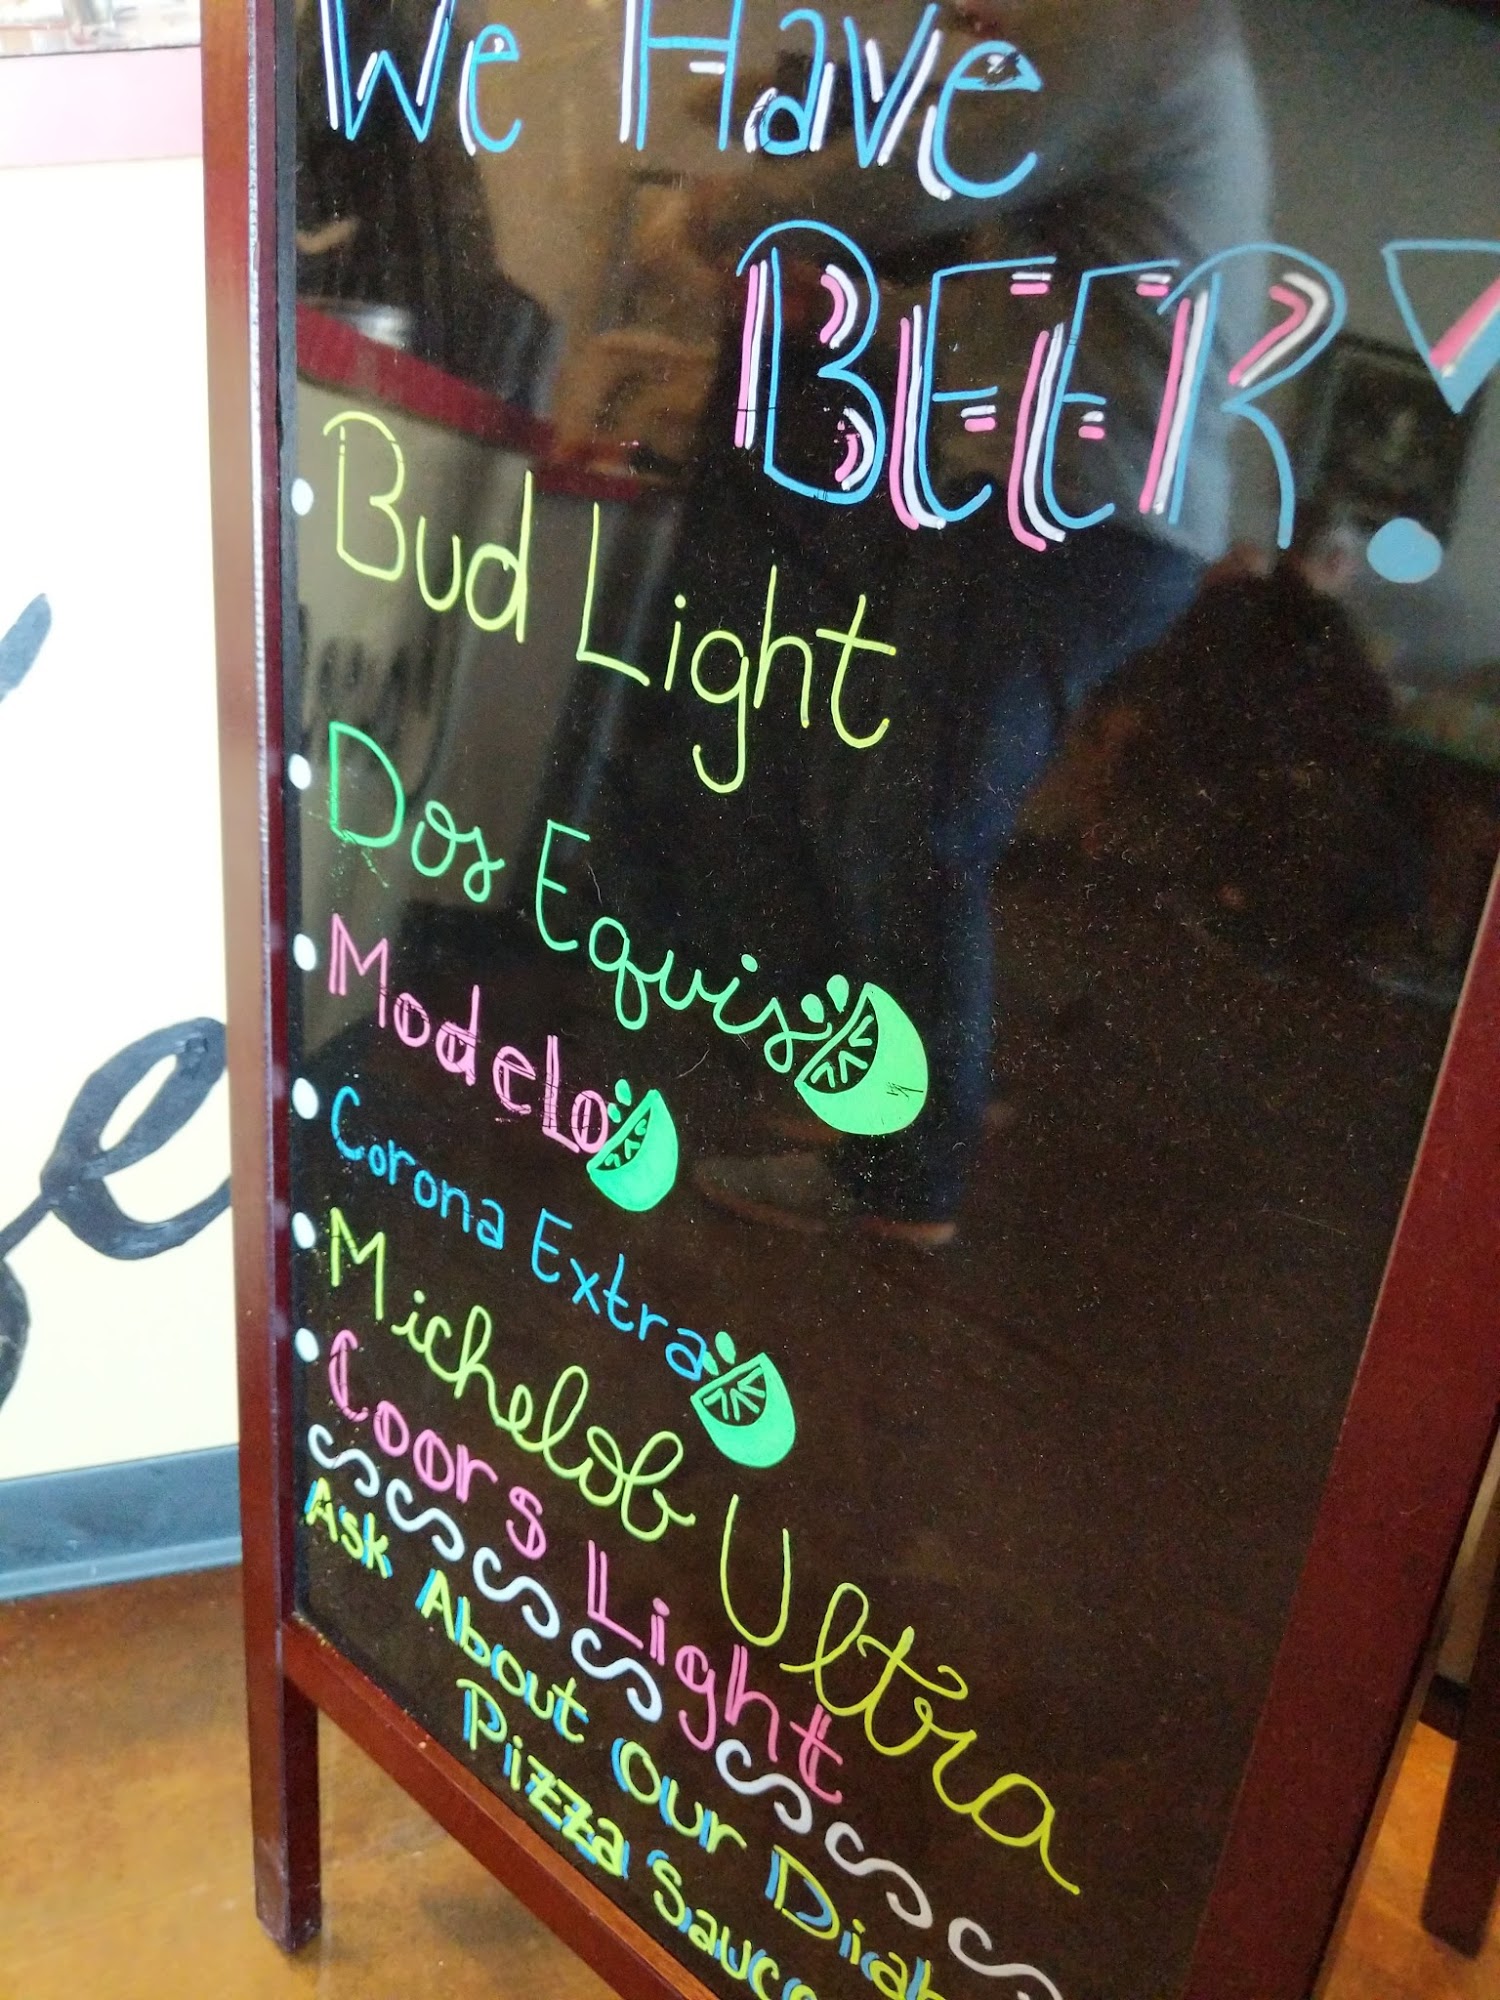 We Have
BEER!
Bud Light
Dos Equis
Modelo
Corona Extra
Michelob Ultra
Coors Light
Ask About Our
Pizza Sauce